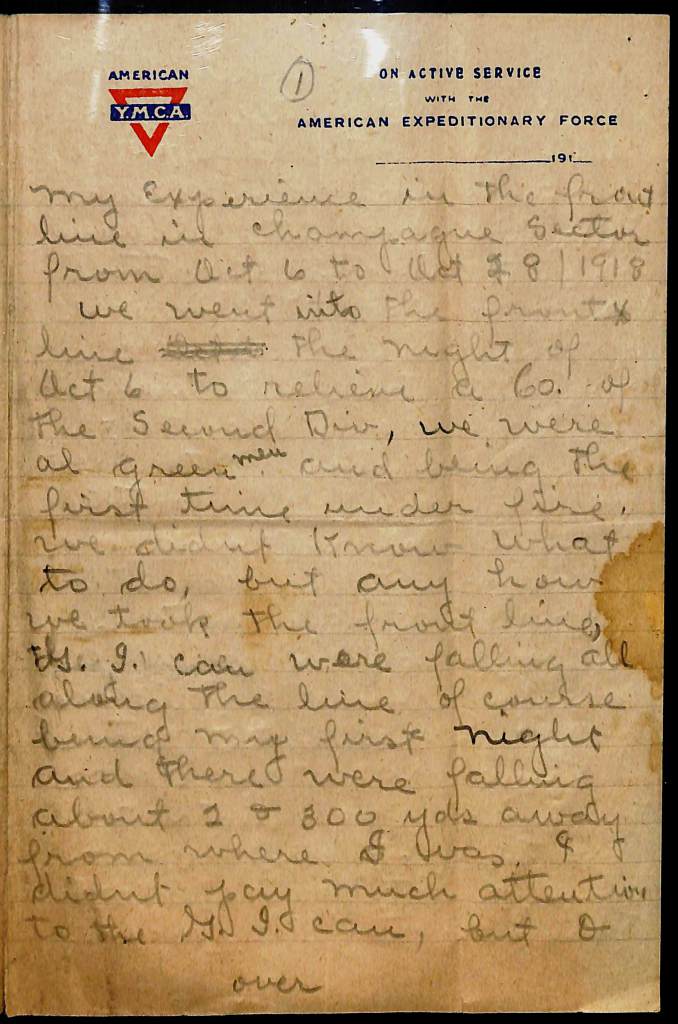 AMERICAN
Y.M.C.A.
1
ON ACTIVE SERVICE
WITH THE
AMERICAN EXPEDITIONARY FORCE
191
My Experience in the front
line in Champagne Sector
from Oct 6 to Oct 28/1918
we went into the front
line the night of
Oct 6 to relieve a Co. of
the Second Div, we were
al green men and being the
first time under fire.
we didnt Know what
to do, but any how
we took the front line,
G. I. can were falling all
along the line of course
being my first night
and there were falling
about 2 & 300 yds away
from where I was, & I
didnt pay much attention
to the G. I. can, but I
over